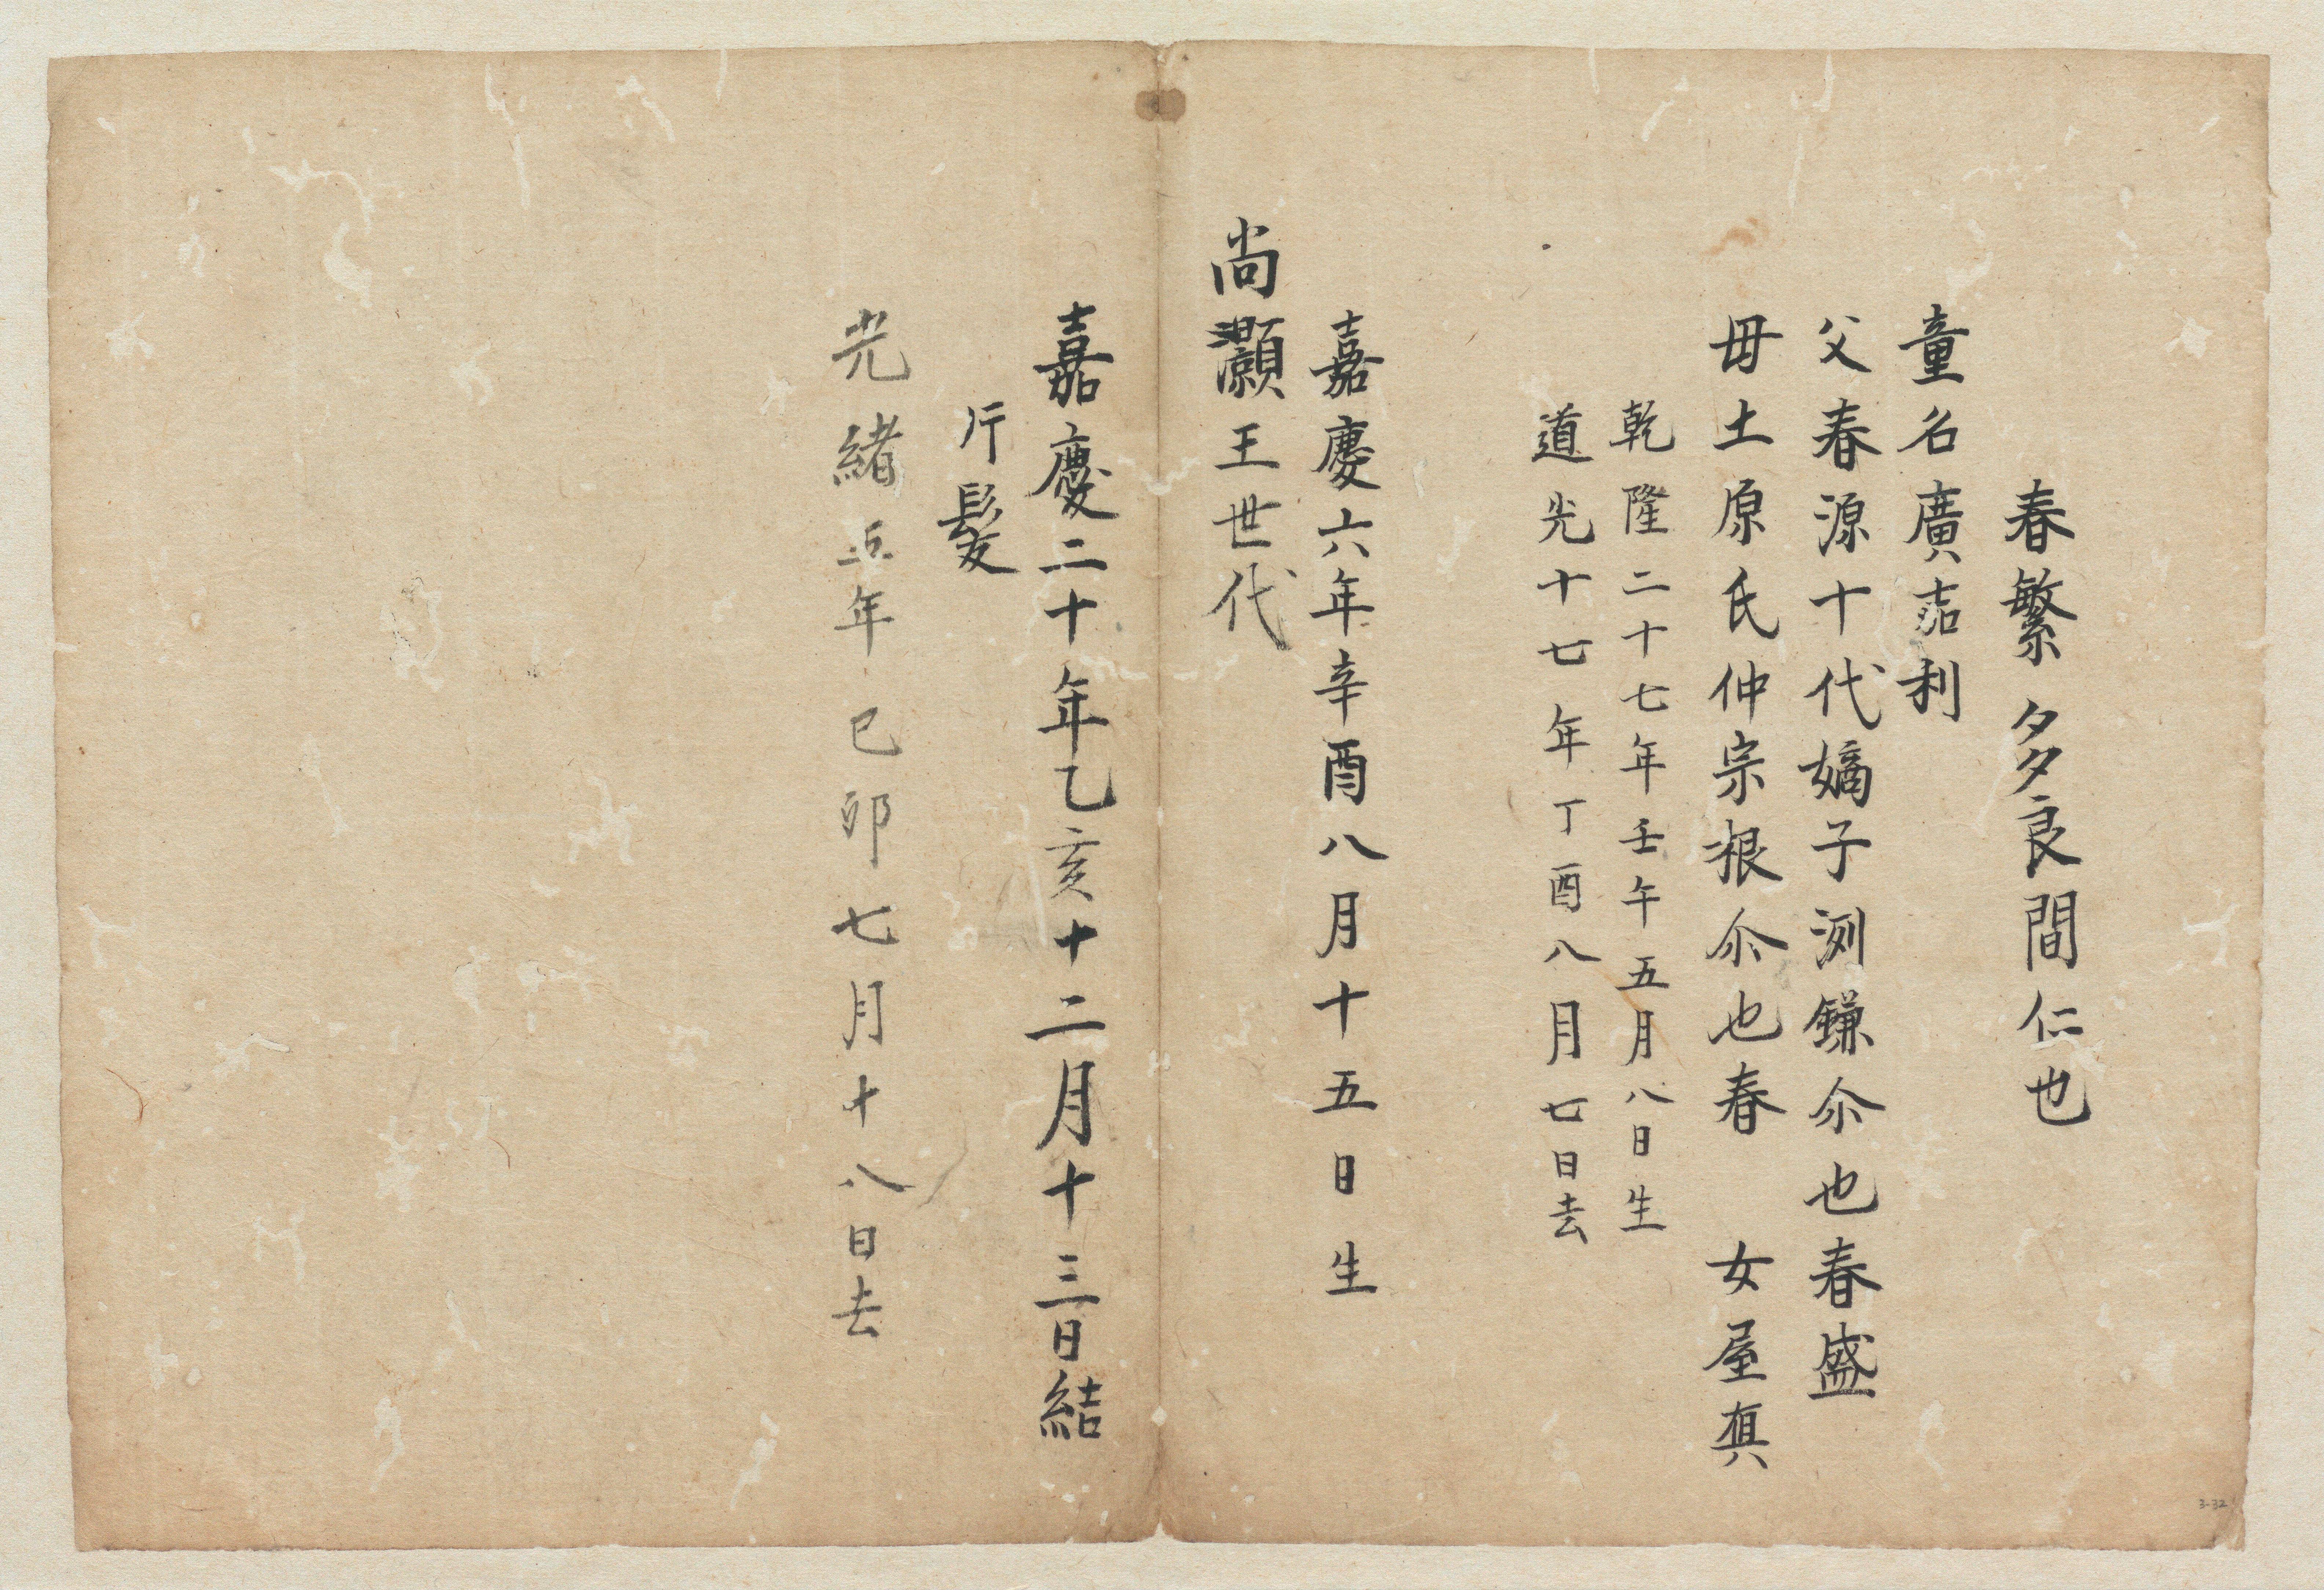 春繁多良間仁也
童名廣嘉利
父春源十代嫡子渕鎌尒也春盛
母土原氏仲宗根尒也春 女屋真
乾隆二十七年壬午五月八日生
道光十七年丁酉八月七日去
嘉慶六年辛酉八月十五日生
尚灝王世代
嘉慶二十年乙亥十二月十三日結
片髪
光緒五年己卯七月十八日去
3-32